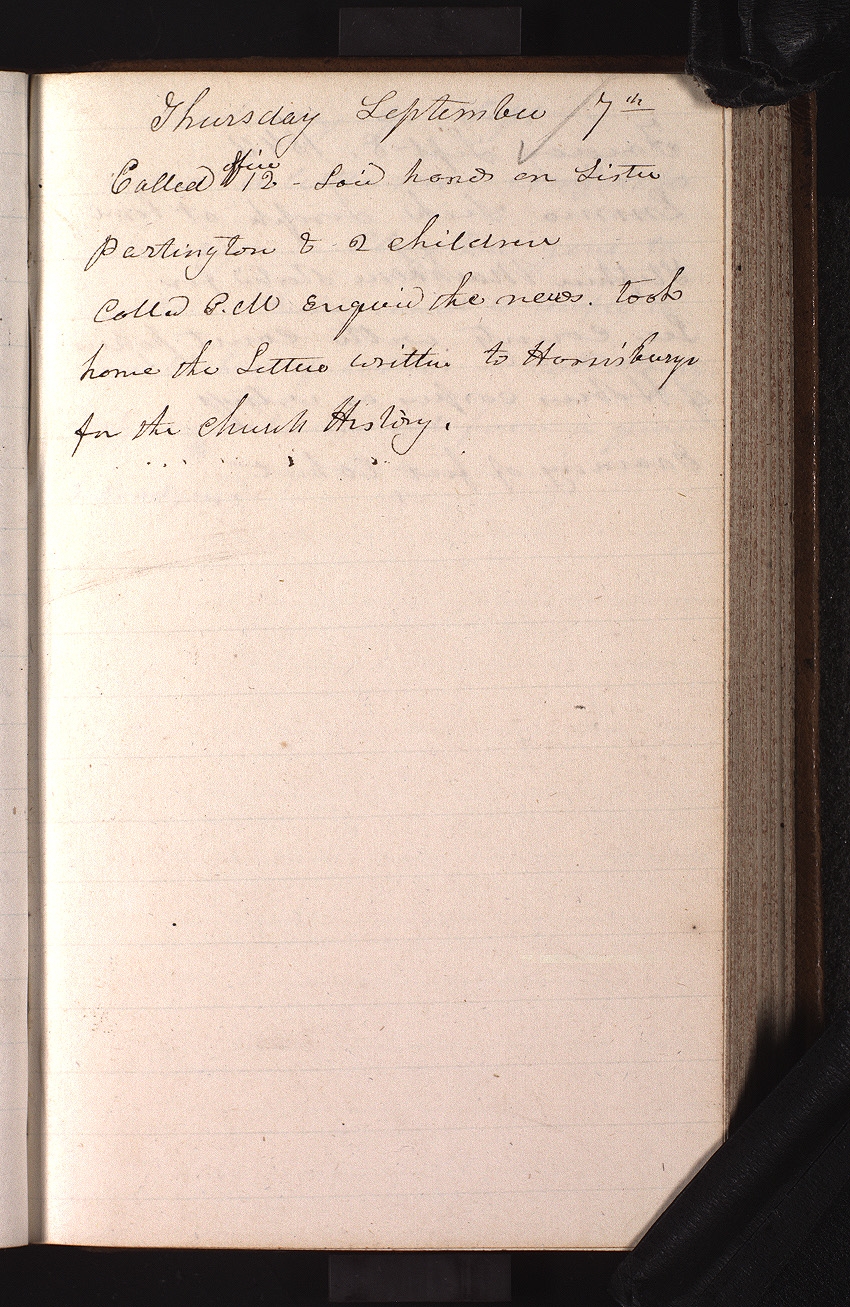 Thursday September 7th
Called office 12 - Laid hands on Sister
Partington & 2 children
Called P.M Enquird the news. took
home the Letters written to Harrisburgh
for the Church History.